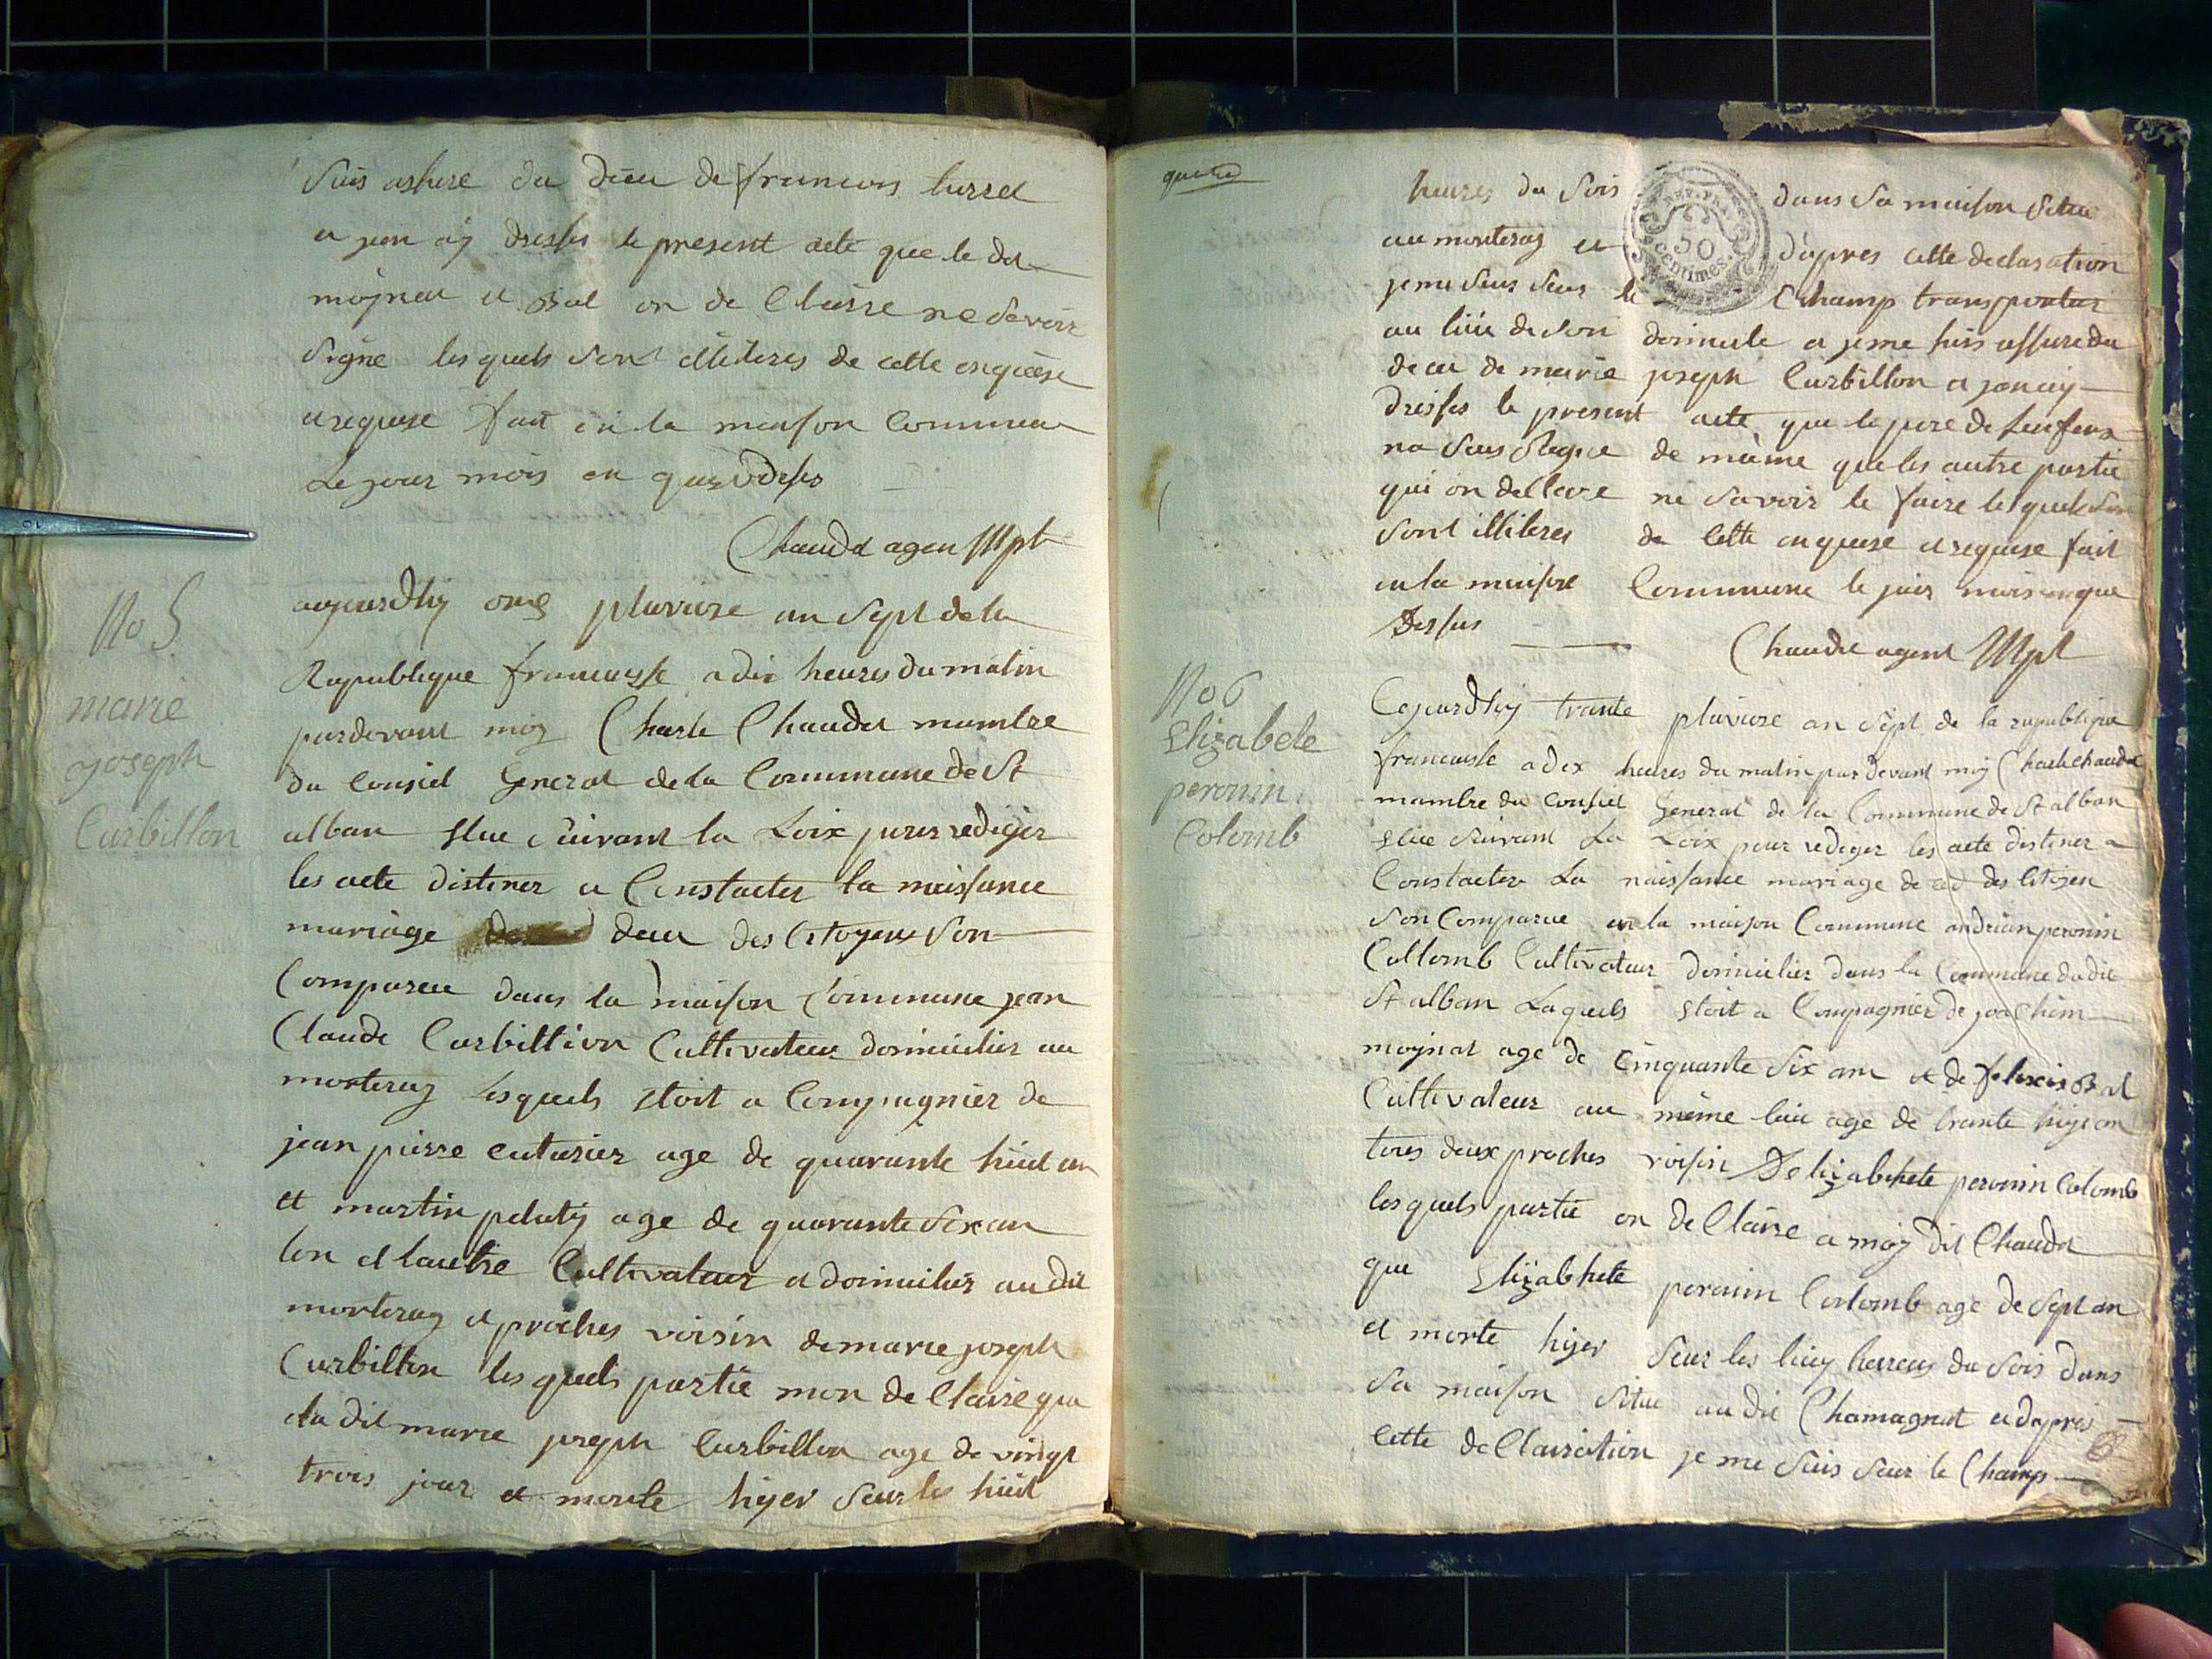 suis assure du déces de francois turrel
et jen ay dresses le present acte que le dit
mojnat et Bal on de Claire ne Savoir
Signe les quels Sont illiteres de cette enquise
et requise fait en la maison Commun
Le jour mois en que dessus
Chaudet agen Mpt
No 5
marie
joseph
Curbillon
aujourdhy onze pluviose an Sept de la
Republique francaisse a dix heures du matin
pardevant moy Charle Chaudet mambre
du Consiel General de la Commune de St
alban Elue suivant la Loix pour rediger
les acte distiner a Constacter la naissance
mariage deces des Citoyens Son
Comparue dans la maison Commune jean
Claude Curbillion Cultivateur domicilier au
monteray les quels Etoit a Compagnier de
jean pierre cuturier age de quarante huit an
et martin pelaty age de quarante Six an
lon et lautre Cultivateur et domicilier au dit
monteray et proches voisin de marie joseph
Curbillon les quels partie mon de Claire que
la dit marie joseph Curbillon age de vingt
trois jour et morte hyer Seur les huit
heures du Soir dans Sa maison Situe
au monteray et d'apres cette declaration
REP. FRA.
50
Centimes.
je me Suis Seur le Champ transporter
au lieu de Son domicile et je me suis assure du
deces de marie joseph Curbillon et jen ay
dresses le present acte que le pere de lenfens
na Seus Signe de même que les autre partie
qui on dellare ne Savoir le faire les quels Son
Sont illiteres de Cette enquise et requise fait
en la maison Commune le jour mois en que
Dessus
Chaudet agent Mpt
No 6
Elizabete
peronin
Colomb
Cejourdhy trante pluviose an Sept de la republique
francaisse a dix heures du matin par devant moy Charle Chaudet
mambre du Consiel General de la Commune de St alban
Elue Suivant La Loix pour rediger les acte destiner a
Constacter La naissance mariage deces des Citoyen
Son Comparue en la maison Commune andrian peronin
Collomb Cultivateur domicilier dans la Commune du dit
St alban Laquels Etoit a Compagnier de joachim
mojnat age de Cinquante Six ans et de felixis Bal
Cultivateur au même lieu age de trante huit an
tous deux proches voisin Delizabhete peronin Colomb
les quels partie on de Claire a moy dit Chaudet
que Elizabhete peronin Colomb age de Sept an
et morte hyer Seur les heures du Soir dans
Sa maison Situe au dit Chamagnat et dapres
Cette de Clairation je me Suis Seur le Champ